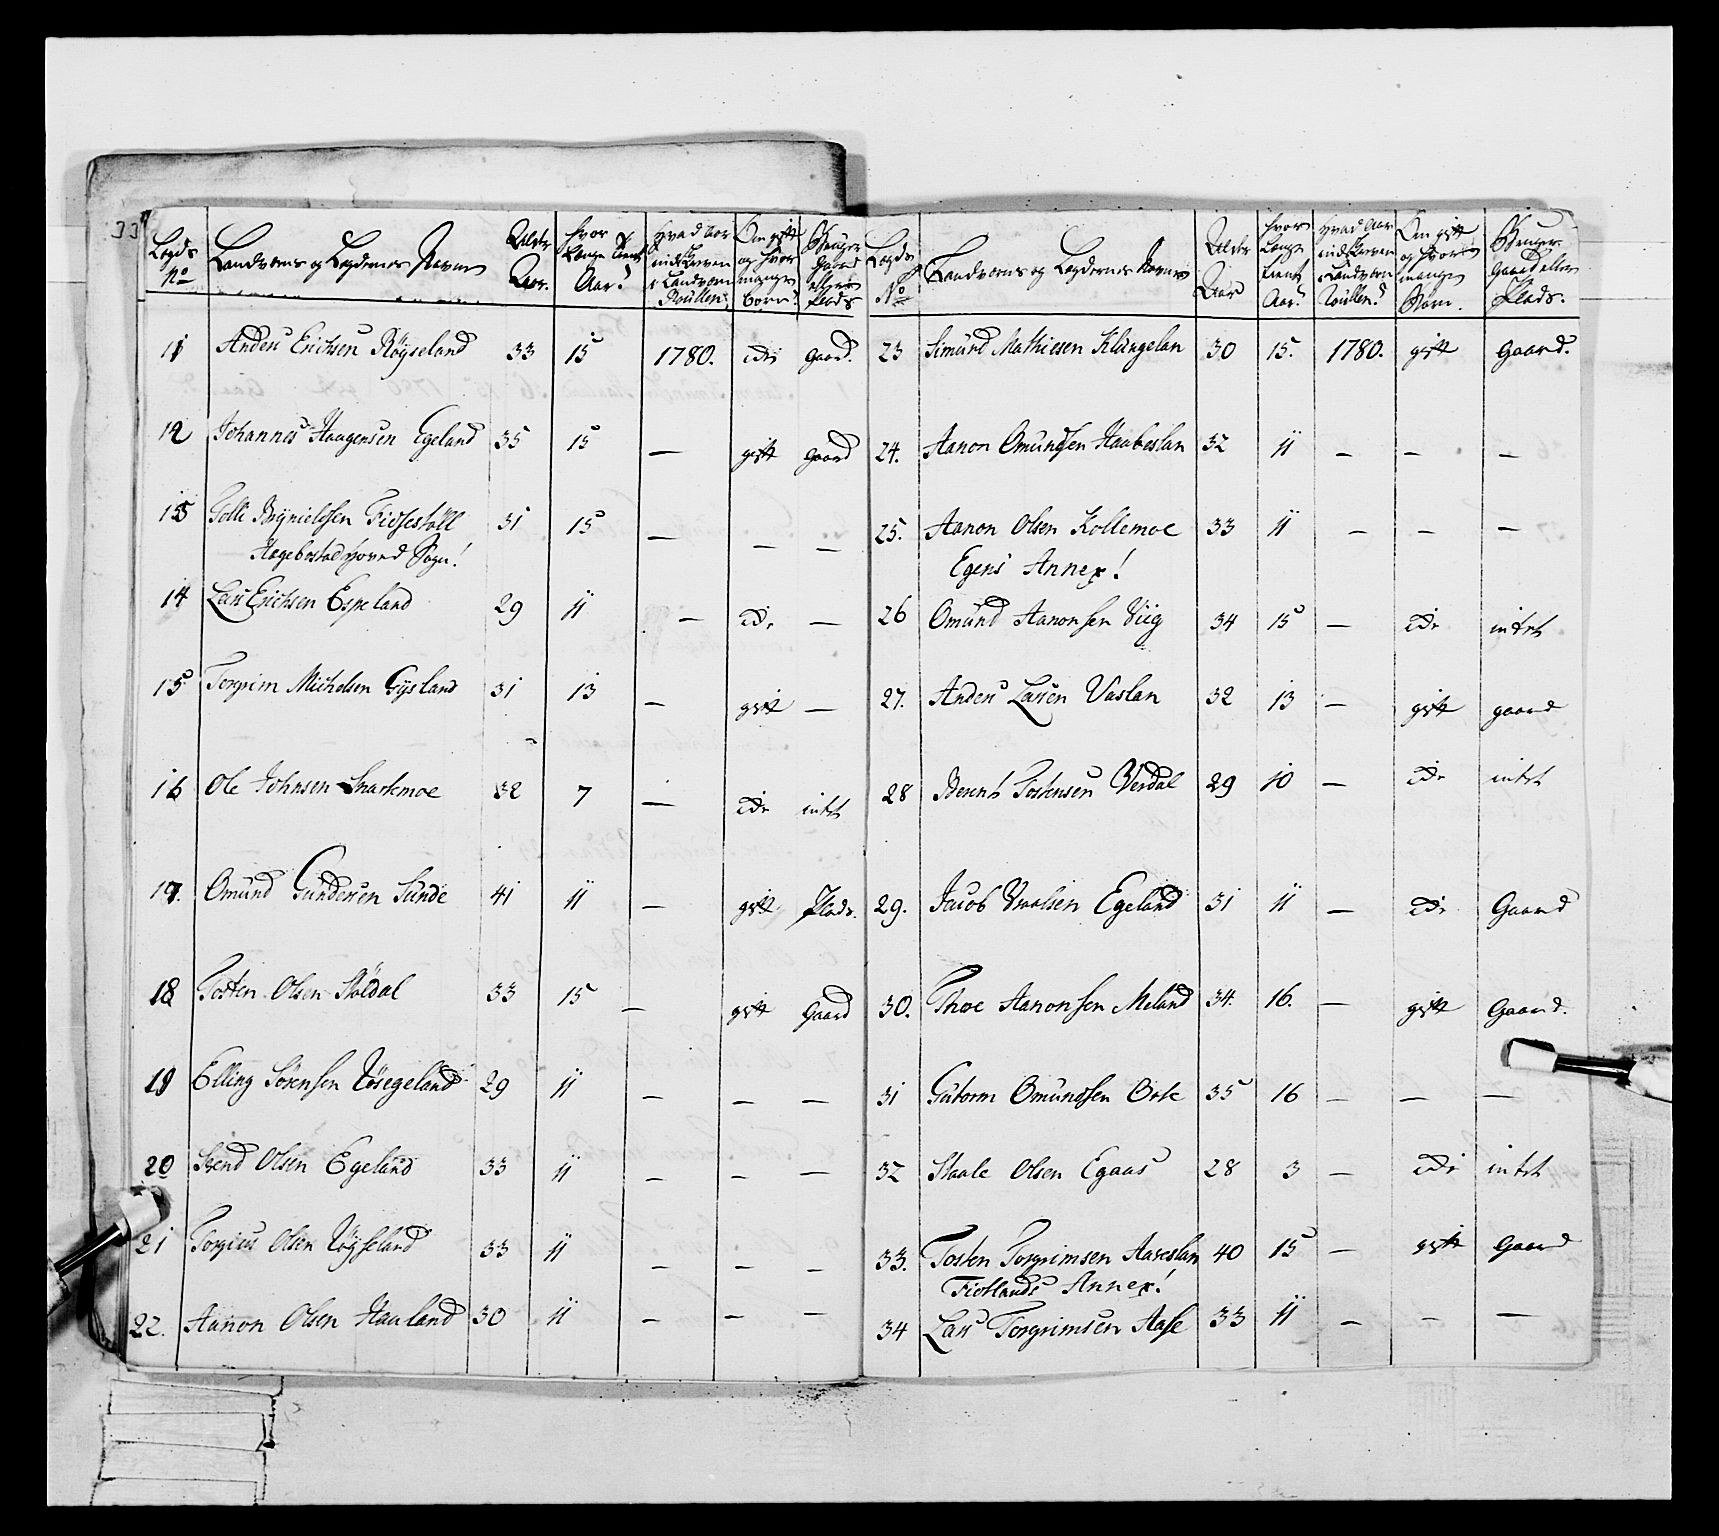 33
Legds No | Landverns og Legdernes Navne | Alder Aar. | Hvor Længe tient Aar? | Hvad Aar indskreven i Landværn Roullen? | Om gift og hvor mange børn? | Bruger Gaard eller Plads
11 Anders Erichsen Röyseland 33 15 1780. idr gaard.
12 Johannes Haagensen Egeland 35 15 — gift gaard
13 Tolli Brynielsen Fidjestöll 31 15 — — —
Hægebostad Hoved Sogn!
14 Lars Erichsen Espeland 29 11 — idr —
15 Torgrim Michelsen Gysland 31 13 — gift —
16 Ole Johnsen Snartemoe 32 7 — idr intet
17. Omund Gundersen Sunde 41 11 — gift Plads.
18 Tosten Olsen Stöldal 33 15 — gift Gaard
19 Elling Sörensen Rösegeland 29 11 — — —
20 Svend Olsen Egeland 33 11 — — —
21 Torgius Olsen Röyseland 33 11 — — —
22. Aanon Olsen Haaland 30 11 — — —
Legds No | Landverns og Legdernes Navne | Alder Aar | Hvor Længe tient Aar? | Hvad Aar indskreven i Landværn Roullen? | Om gift og hvor mange Börn. | Bruger Gaard eller Plads.
23 Simund Mathiesen Klungelan 30 15. 1780. gift Gaard.
24. Aanon Omundsen Haabeslan 32 11 — — —
25. Aanon Olsen Kollemoe 33 11 — — —
Egens Annex!
26 Omund Aanonsen Viig 34 15 — idr intet
27. Anders Larsen Vaslan 32 13 — gift gaard
28 Berent Tostensen Verdal 29 10 — idr intet
29. Jacob Vraalsen Egeland 31 11 — idr Gaard
30. Thore Aanonsen Meland 34. 16. — gift Gaard.
31 Gutorm Omundsen Birke 35 16 — — —
32 Staale Olsen Egaas 28 3 — idr intet
33. Tosten Torgrimsen Aareslan 40 15 — gift Gaard
Fiotlands Annex!
34 Lars Torgrimsen Aase 33 11 — — —